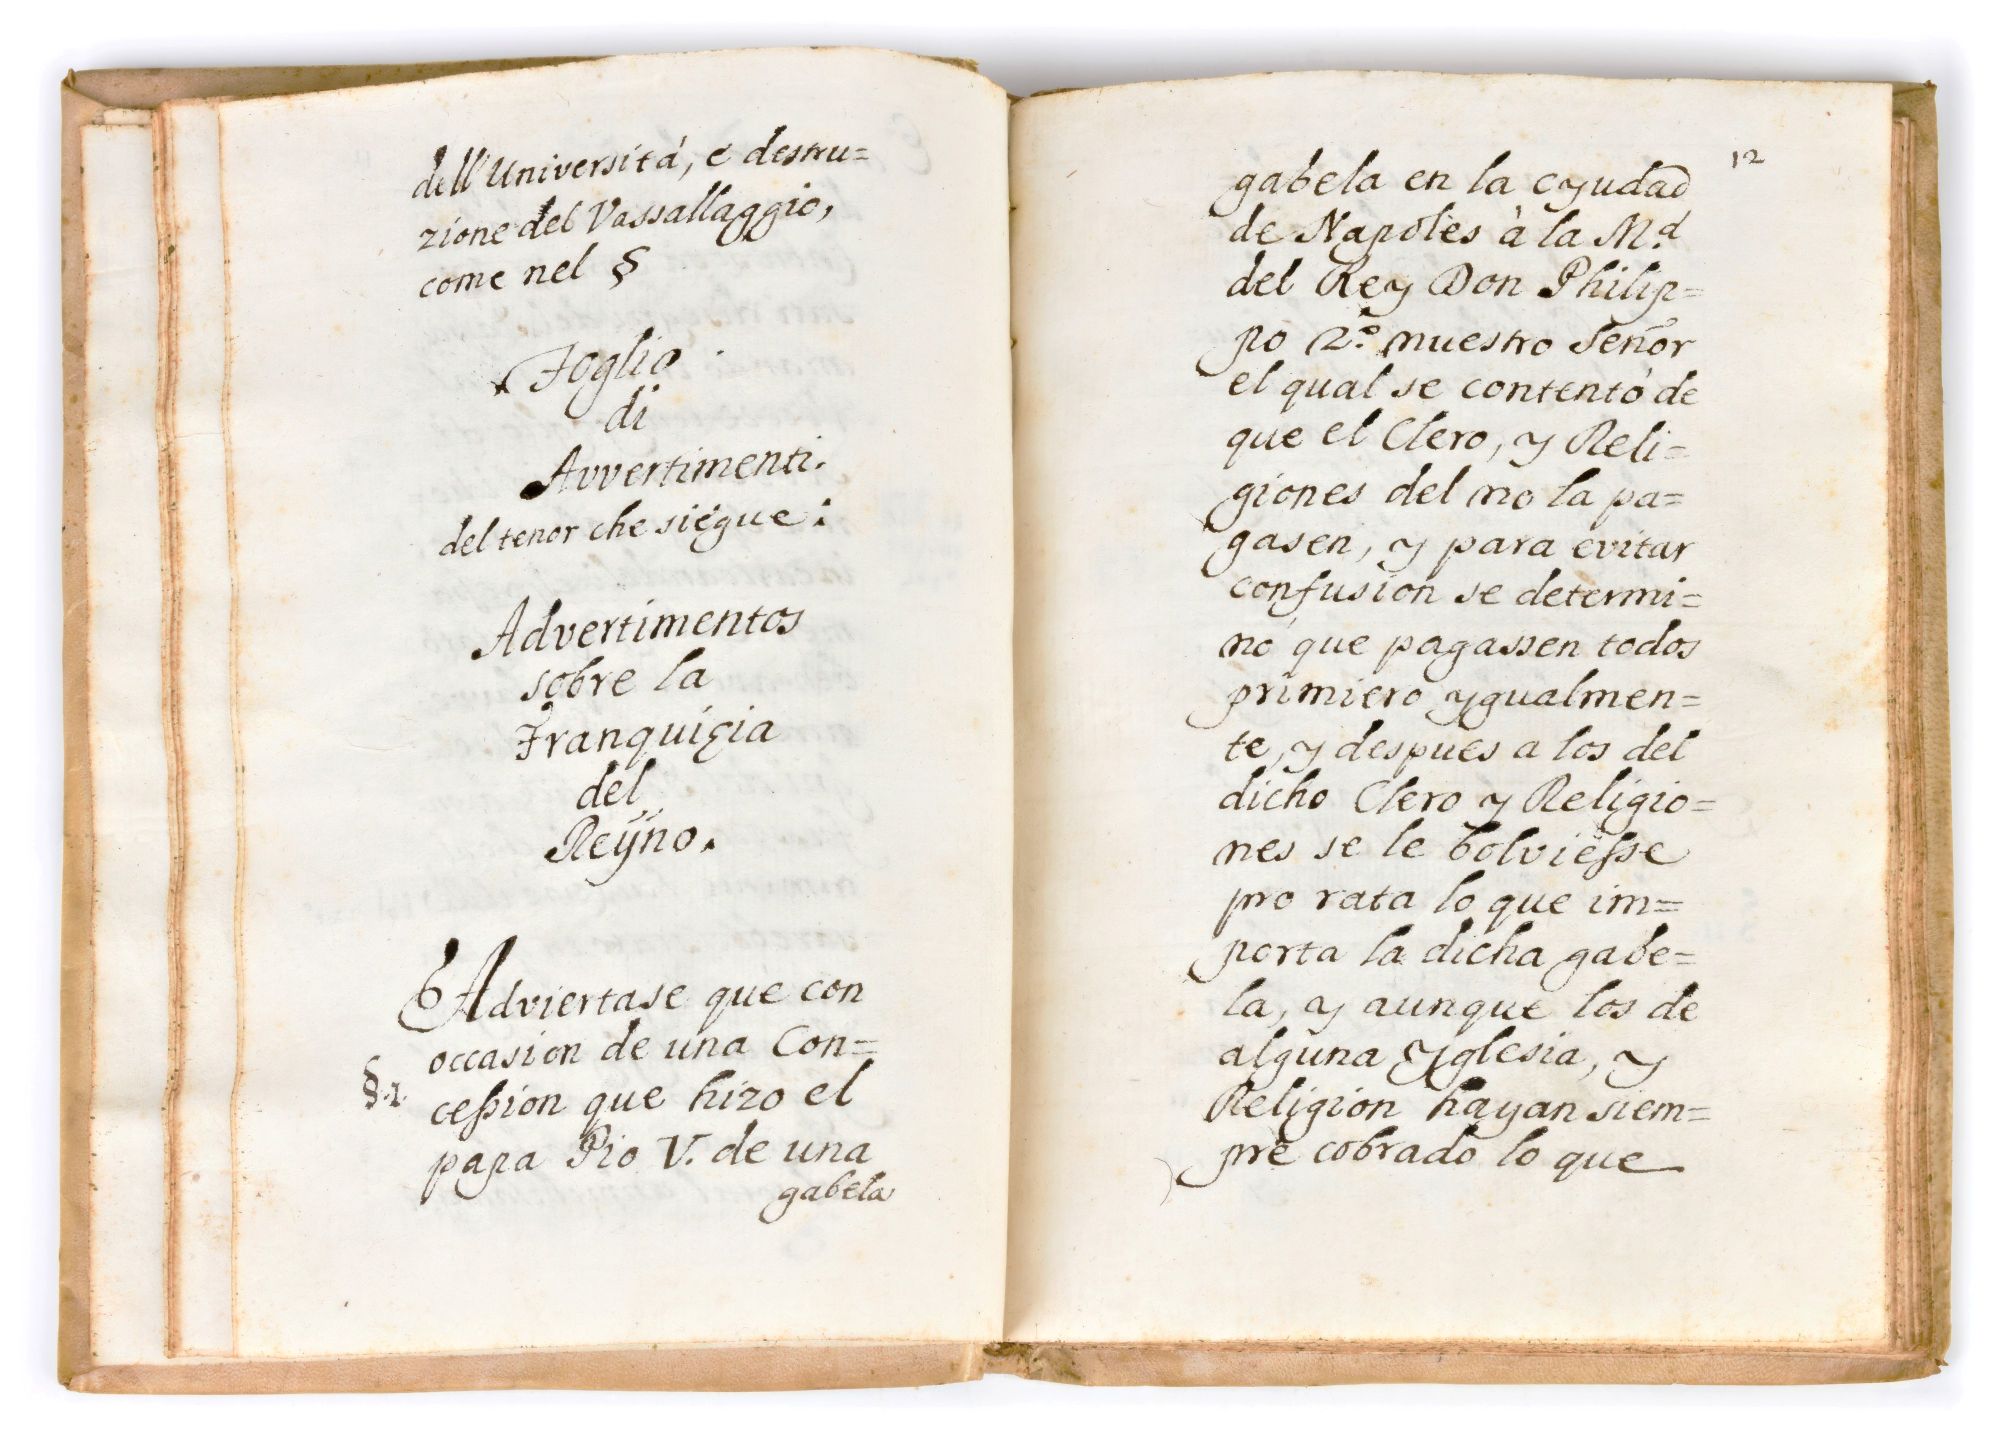 dell'Universitá, e destru=
zione del Vassallaggio,
come nel §
Foglio
di
Avvertimenti.
del tenor che siégue:
Advertimentos
sobre la
Franquiçia
del
Reÿno.
Adviertase que con
occasion de una Con=
§.1.
ceßion que hizo el
papa Pio V. de una
gabela
12
gabela en la cyudad
de Napoles à la M.d
del Rey Don Philip=
po 2.o nuestro Señor
el qual se contentó de
que el Clero, y Reli=
giones del no la pa=
gasen, y para evitar
confusion se determi=
nó que pagassen todos
primiero ygualmen=
te, y despues a los del
dicho Clero y Religio=
nes se le bolviësse
pro rata lo que im=
porta la dicha gabe=
la, y aunque los de
alguna Yglesia, y
Religion hayan siem=
pre cobrado lo que